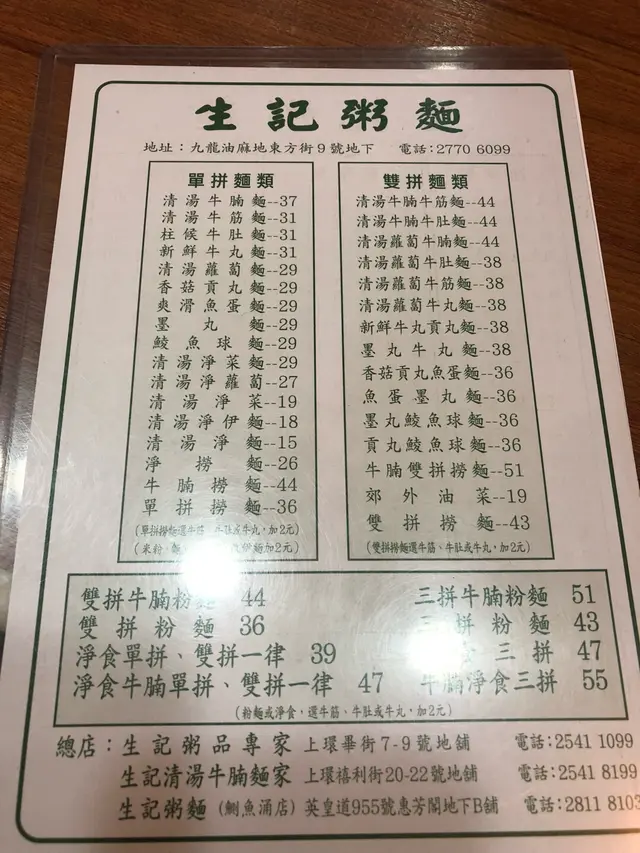 生記粥麵
地址：九龍油麻地東方街9號地下 電話：2770 6099
單拼麵類
清湯牛腩麵--37
清湯牛筋麵--31
柱候牛肚麵--31
新鮮牛丸麵--31
清湯蘿蔔麵--29
香菇貢丸麵--29
爽滑魚蛋麵--29
墨丸麵--29
鯪魚球麵--29
清湯淨菜麵--29
清湯淨蘿蔔--27
清湯淨菜--19
清湯淨伊麵--18
清湯淨麵--15
淨撈麵--26
牛腩撈麵--44
單拼撈麵--36
(單拼撈麵選牛筋、牛肚或牛丸，加2元)
(米粉，加2元)
雙拼麵類
清湯牛腩牛筋麵--44
清湯牛腩牛肚麵--44
清湯蘿蔔牛腩麵--44
清湯蘿蔔牛肚麵--38
清湯蘿蔔牛筋麵--38
清湯蘿蔔牛丸麵--38
新鮮牛丸貢丸麵--38
墨丸牛丸麵--38
香菇貢丸魚蛋麵--36
魚蛋墨丸麵--36
墨丸鯪魚球麵--36
貢丸鯪魚球麵--36
牛腩雙拼撈麵--51
郊外油菜--19
雙拼撈麵--43
(雙拼撈麵選牛筋、牛肚或牛丸，加2元)
雙拼牛腩粉麵 44
雙拼粉麵 36
淨食單拼、雙拼一律 39
淨食牛腩單拼、雙拼一律 47
三拼牛腩粉麵 51
三拼粉麵 43
食三拼 47
牛腩淨食三拼 55
(粉麵或淨食，選牛筋、牛肚或牛丸，加2元)
總店：生記粥品專家 上環畢街7-9號地舖 電話：2541 1099
生記清湯牛腩麵家 上環禧利街20-22號地舖 電話：2541 8199
生記粥麵（鰂魚涌店）英皇道955號惠芳閣地下B舖 電話：2811 8103